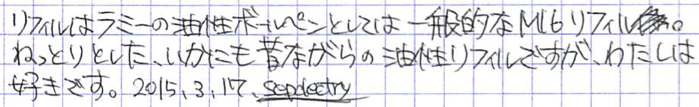 リフィルはラミーの油性ボールペンとしては一般的なM16リフィル。
ねっとりとした、いかにも昔ながらの油性リフィルですが、わたしは
好きです。2015.3.17.